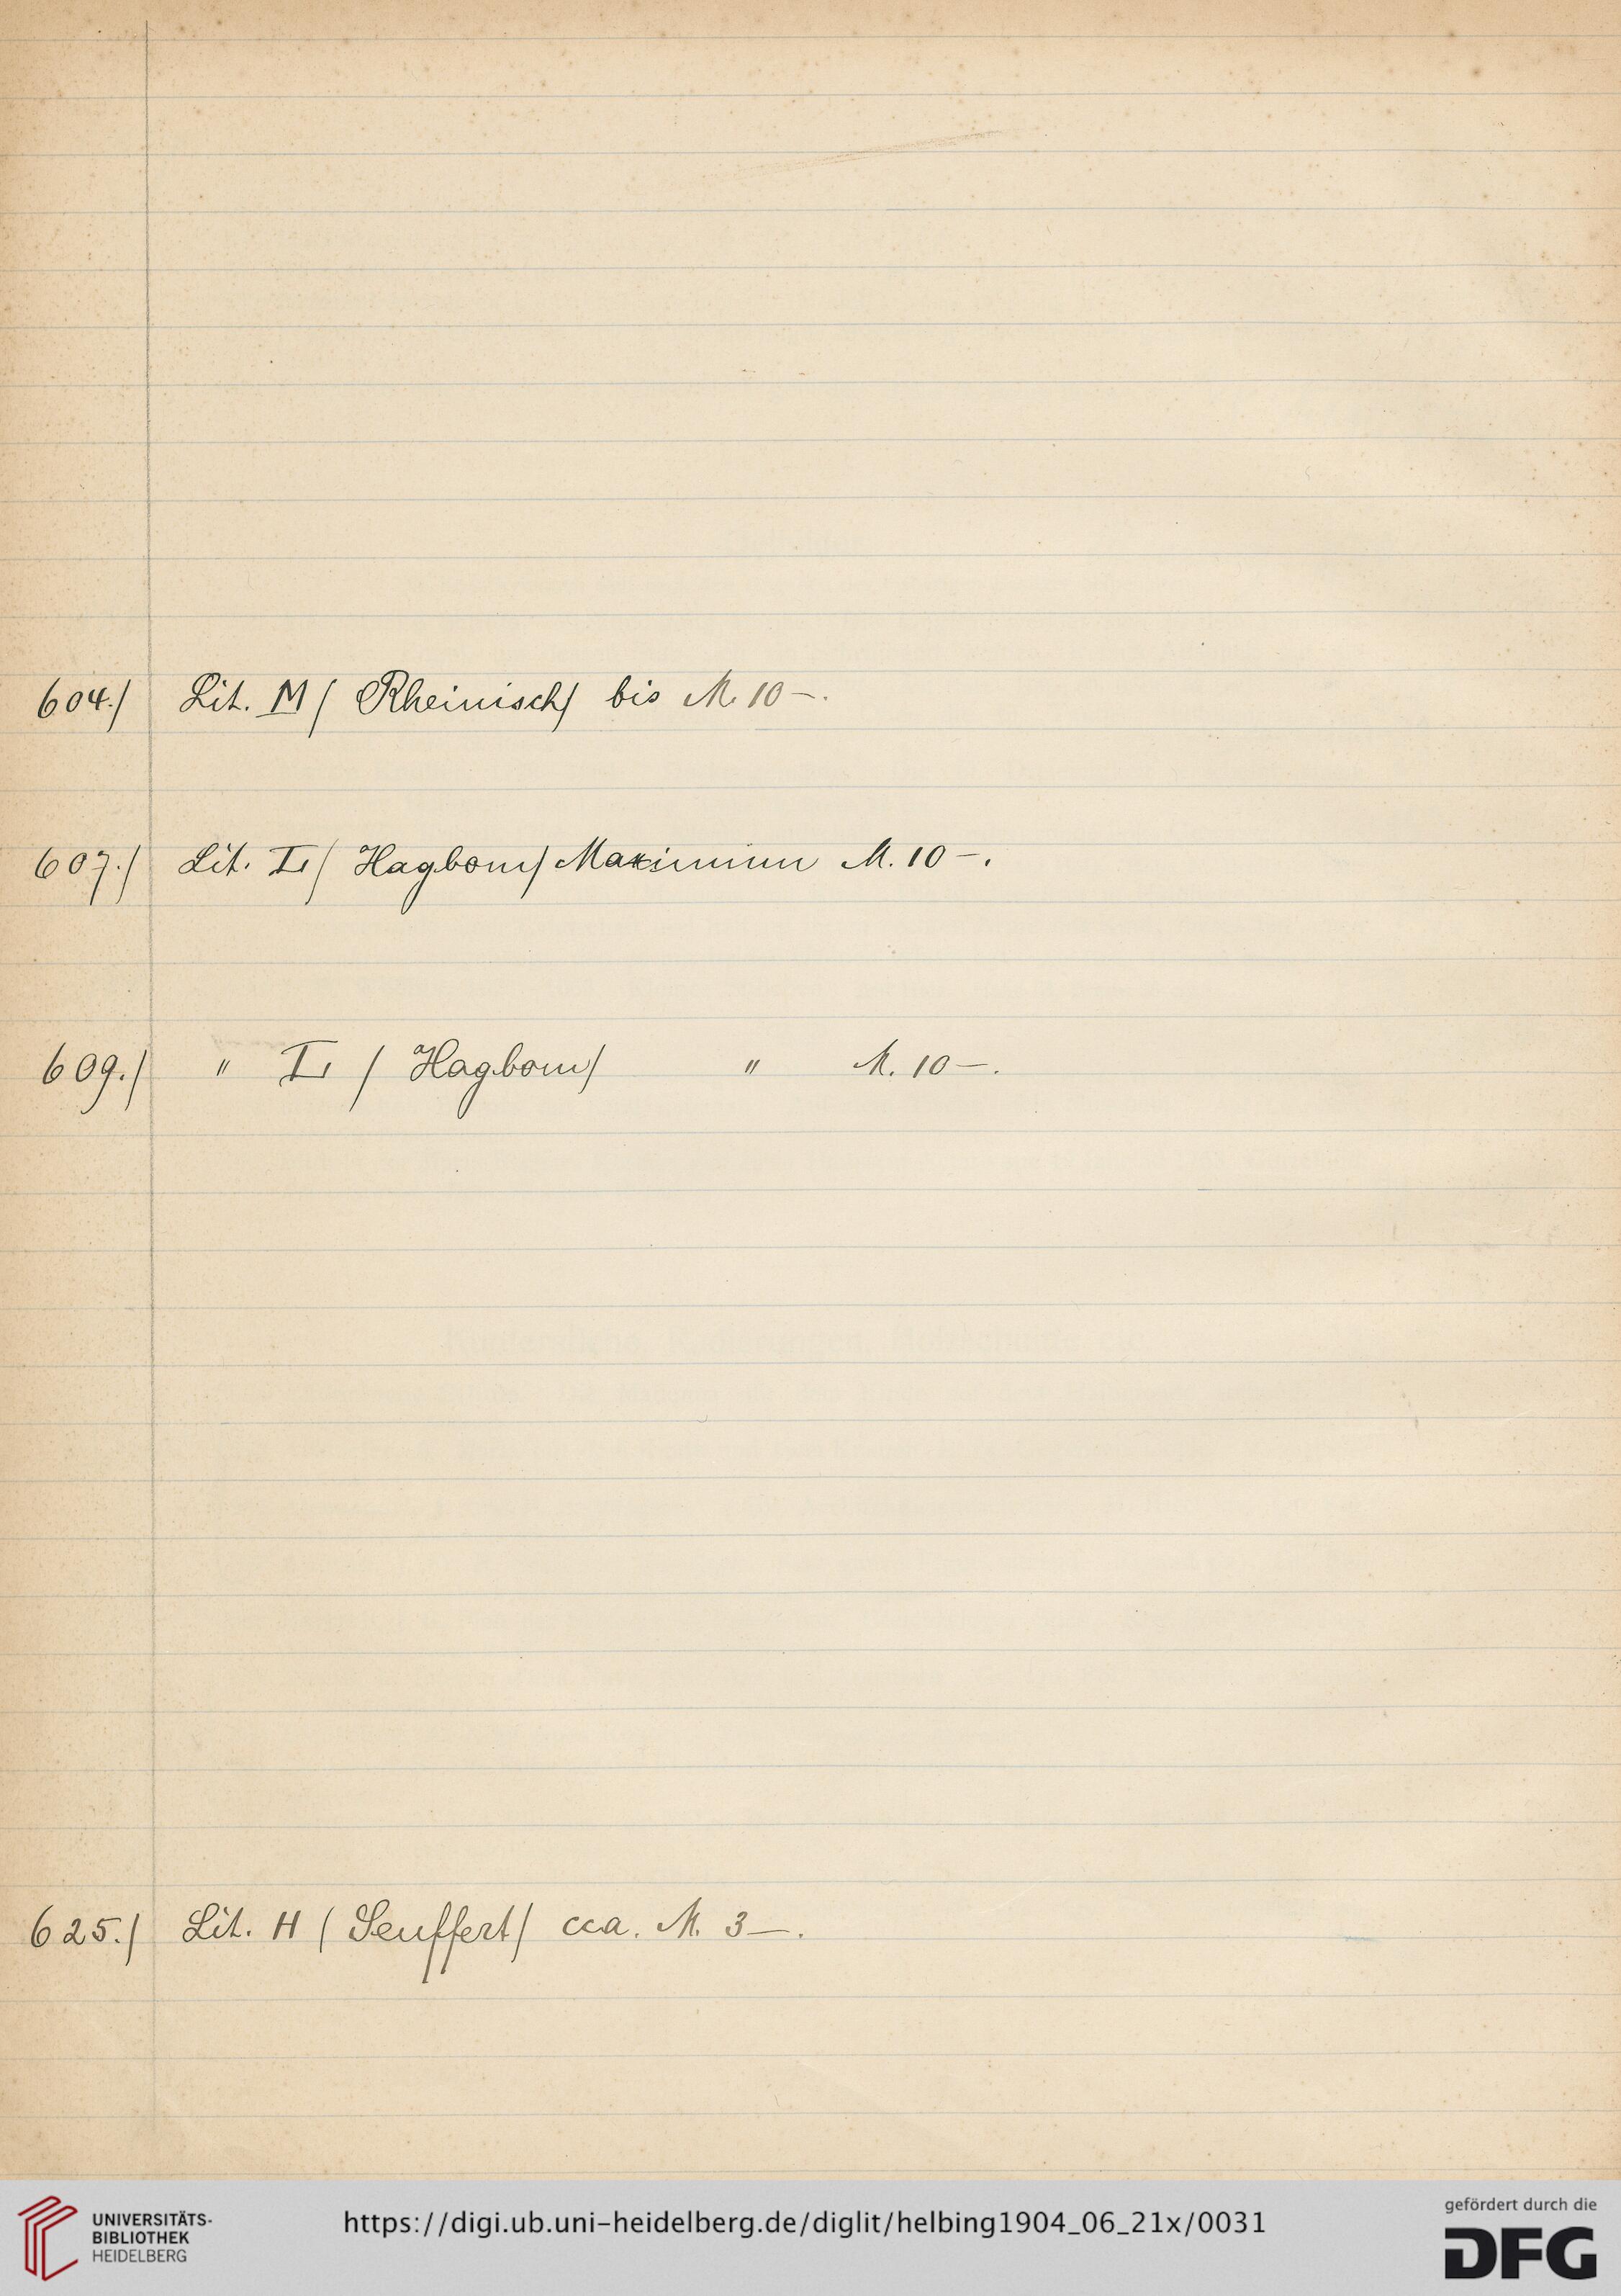 604./ Lit. M / Rheinisch/ bis M. 10 –.
607./ Lit. L / Hagbom/ Maximum M. 10 –.
609./ " L / Hagbom/ " M. 10 –.
625./ Lit. H / Seuffert/ cca. M. 3 –.
UNIVERSITÄTS-
BIBLIOTHEK
HEIDELBERG
https://digi.ub.uni-heidelberg.de/diglit/helbing1904_06_21x/0031
gefördert durch die
DFG